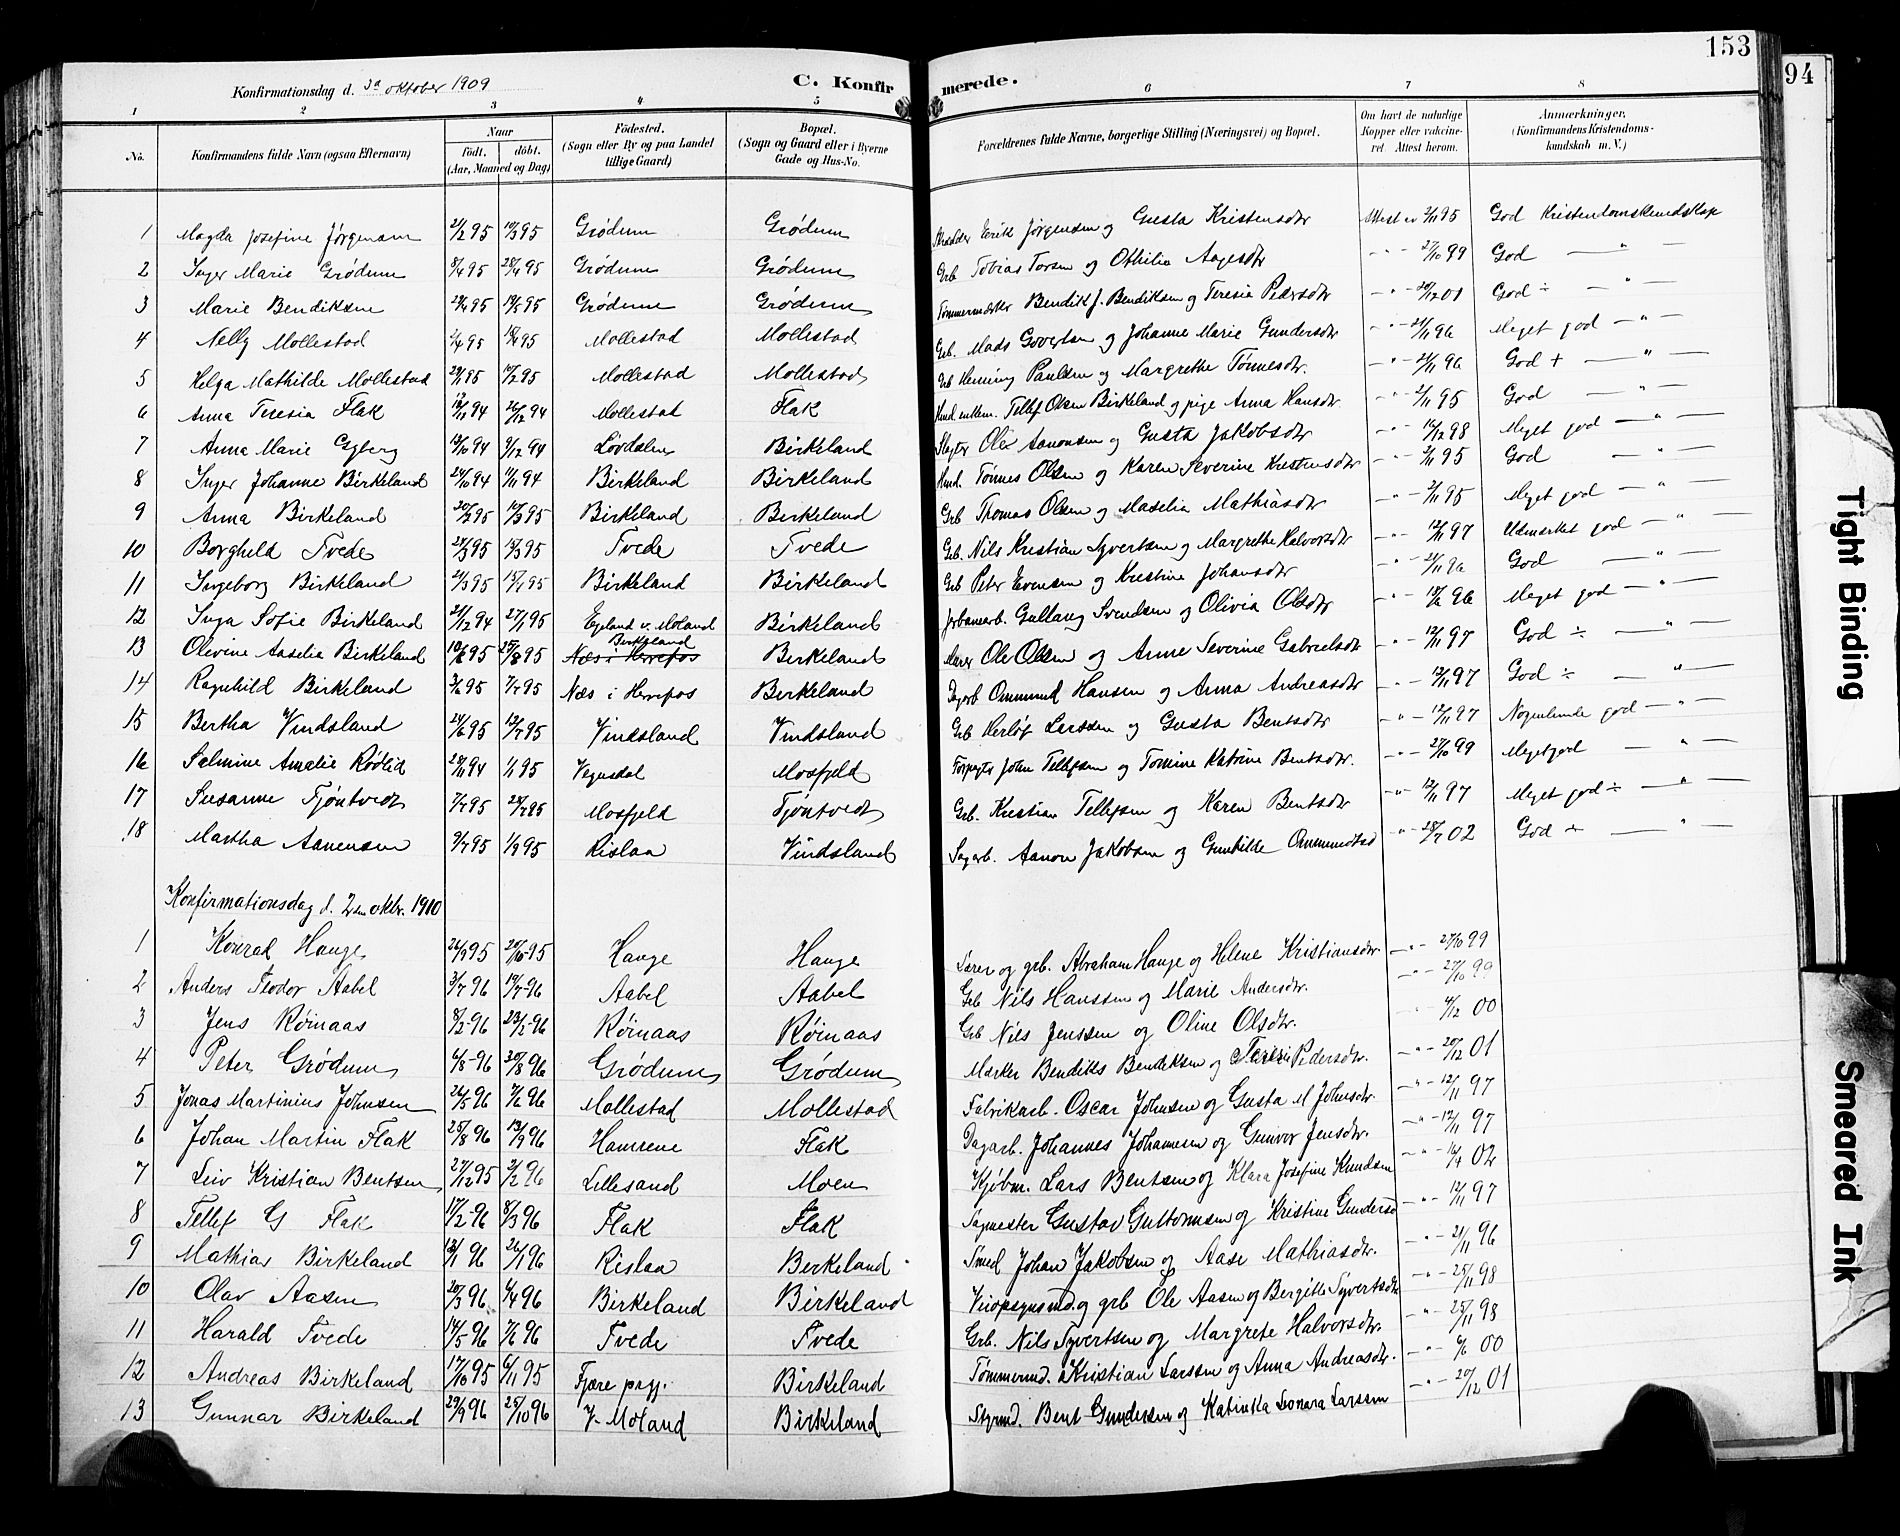 153
94
Konfirmationsdag d. 3a oktober 1909
C. Konfirmerede.
1 2 3 4 5 6 7 8
No. Konfirmandens fulde Navn (ogsaa Efternavn) Naar födt. döbt. (Aar, Maaned og Dag) Födested. (Sogn eller By og paa Landet tillige Gaard) Bopæl. (Sogn og Gaard eller i Byerne Gade og Hus-No. Forældrenes fulde Navne, borgerlige Stilling (Næringsvei) og Bopæl. Om havt de naturlige Kopper eller vakcineret Attest herom. Anmærkninger, (Konfirmandens Kristendomskundskab m. V.)
1 Magda Josefine Jørgensen 21/2 95 10/3 95 Grødum Grødum Erik Jørgensen og Gusta Kristensdtr Attest av 2/11 95 God Kristendomskundskap
2 Inger Marie Grødum 8/4 95 28/4 95 Grødum Grødum Grb Tobias Torsen og Othilie Aagesdtr - " - 27/10 99 God — " —
3 Marie Bendiksen 29/4 95 19/5 95 Grødum Grødum Bendik J. Bendiksen og Teresie Pedersdtr - " - 20/12 01 God ÷ — " —
4 Nelly Mollestad 2/4 95 15/4 95 Mollestad Mollestad Grb. Mads Govertsen og Johanne Marie Gundersdtr - " - 21/11 96 Meget god — " —
5 Helga Mathilde Mollestad 29/1 95 17/2 95 Mollestad Mollestad Grb Henning Paulsen og Margrethe Tønnesdtr. - " - 21/11 96 God + — " —
6 Anna Teresia Flak 12/11 94 26/12 94 Mollestad Flak Tellef Olsen Birkeland og pige Anna Hansdtr. - " - 2/11 95 God — " —
7 Anna Marie Egberg 13/10 94 9/12 94 Lovdalen Birkeland Ole Aanonsen og Gusta Jakobsdtr - " - 12/12 98 Meget god — " —
8 Inger Johanne Birkeland 24/10 94 11/11 94 Birkeland Birkeland Tønnes Olsen og Karen Severine Kristensdtr - " - 2/11 95 God — " —
9 Anna Birkeland 20/2 95 10/3 95 Birkeland Birkeland Grb Thomas Olsen og Maselia Mathiasdtr - " - 2/11 95 Meget god — " —
10 Borghild Tvede 21/2 95 15/3 95 Tvede Tvede Grb. Nils Kristian Syvertsen og Margrethe Halvorsdtr - " - 12/11 97 Udmerket god — " —
11 Ingeborg Birkeland 21/3 95 15/4 95 Birkeland Birkeland Grb Peter Evensen og Kristine Johansdtr - " - 21/11 96 God — " —
12 Inga Sofie Birkeland 21/12 94 27/1 95 Egeland v. Moland Birkeland Jrbanearb. Gullaug Svendsen og Olivia Olsdtr - " - 18/6 96 Meget god — " —
13 Olivine Aaselia Birkeland 10/6 95 25/8 95 Birkeland Næs i Herrefos Birkeland Ole Olsen og Anne Severine Gabrielsdtr - " - 12/11 97 God ÷ — " —
14 Ragnhild Birkeland 3/6 95 7/7 95 Næs i Herrefos Birkeland Dagarb Ommund Hansen og Anna Andreasdtr - " - 12/11 97 God ÷ — " —
15 Bertha Vindsland 24/6 95 12/7 95 Vindsland Vindsland Grb Herløf Larssen og Gusta Bentsdtr - " - 12/11 97 Nogenlunde god — " —
16 Salmine Amalie Rødlid 29/11 94 1/1 95 Vegusdal Mosfjeld Forpagter John Tellefsen og Tomine Katrine Bentsdtr. - " - 27/10 99 Meget god — " —
17 Susanne Tjøntvedt 7/7 95 28/7 95 Mosfjeld Tjøntvedt Grb. Kristian Tellefsen og Karen Bentsdtr - " - 12/11 97 Meget god ÷ — " —
18 Martha Aanensen 9/7 95 1/9 95 Rislaa Vindsland Sagarb. Aanon Jakobsen og Gunhilde Ommundsd - " - 28/7 02 God ÷ — " —
Konfirmationsdag d. 2den oktbr. 1910
1 Konrad Hauge 26/9 95 20/10-95 Hauge Hauge Lærer og grb. Abraham Hauge og Helene Kristiansdtr. - " - 27/10 99
2 Anders Teodor Aabel 3/7 96 19/7-96 Aabel Aabel Grb Nils Hanssen og Marie Andersdtr. - " - 27/10 99
3 Jens Röinaas 8/2-96 23/2-96 Röinaas Röinaas Grb Nils Jenssen og Oline Olsdtr. " - 4/12 00
4 Peter Grödum 6/8-96 30/8 96 Grödum Grödum Mærker Bendiks Bendiksen og Terese Pedersdtr. - " - 20/12 01
5 Jonas Martinius Johnsen 26/5 96 7/6 96 Mollestad Mollestad Fabrikarb. Oscar Johnsen og Gusta M Johnsdtr. - " - 12/11 97
6 Johan Martin Flak 25/8 96 13/9 96 Hamrene Flak Dagarb. Johannes Johannesen og Gunvor Jensdtr. " - 12/11 97
7 Leiv Kristian Bentsen 27/12 95 2/2 96 Lillesand Moen Kjøbm. Lars Bentsen og Klara Josefine Knudsen " - 16/4 02
8 Tellef G Flak 17/2-96 8/3 96 Flak Flak Sagmester Gustav Guttormsen og Kristine Gundersd - " - 12/11 97
9 Mathias Birkeland 12/1 96 26/1 96 Rislaa Birkeland Smed Johan Jakobsen og Aase Mathiasdtr. - " - 21/11 96
10 Olav Aasen 20/3 96 4/4 96 Birkeland Birkeland Veiopsynsmd. og grb Ole Aasen og Bergitte Syvertsdtr " - 25/11 98
11 Harald Tvede 14/5 96 7/6 96 Tvede Tvede Grb. Nils Syvertsen og Margrete Halvorsdtr. " - 25/11 98
12 Andreas Birkeland 17/10 95 6/11 95 Fjære pgj. Birkeland Tømmermd. Kristian Larssen og Anna Andreasdtr. - " - 6/6 00
13 Gunnar Birkeland 29/9 96 25/10 96 V-Moland Birkeland Styrmd. Bent Gundersen og Katinka Leonora Larssen - " - 20/12 01
Tight Binding
Smeared Ink